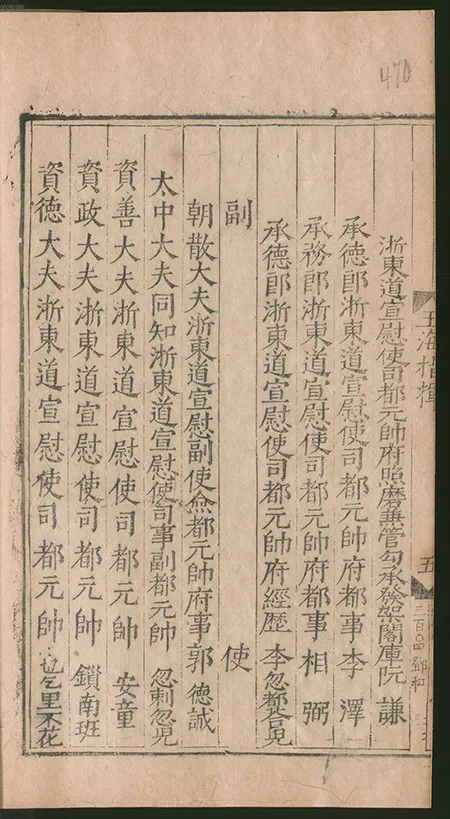 470
玉海指揮 五
浙東道宣慰使司都元帥府照磨兼管勾承發架閣庫阮 謙
承德郎浙東道宣慰使司都元帥府都事李 澤
承務郎浙東道宣慰使司都元帥府都事相 弼
承德郎浙東道宣慰使司都元帥府經歷 李忽都荅兒
副 使
朝散大夫浙東道宣慰副使僉都元帥府事郭 德誠
太中大夫同知浙東道宣慰使司事副都元帥 忽剌忽兒
資善大夫浙東道宣慰使司都元帥 安童
資政大夫浙東道宣慰使司都元帥 鎖南班
資德大夫浙東道宣慰使司都元帥 也乞里不花